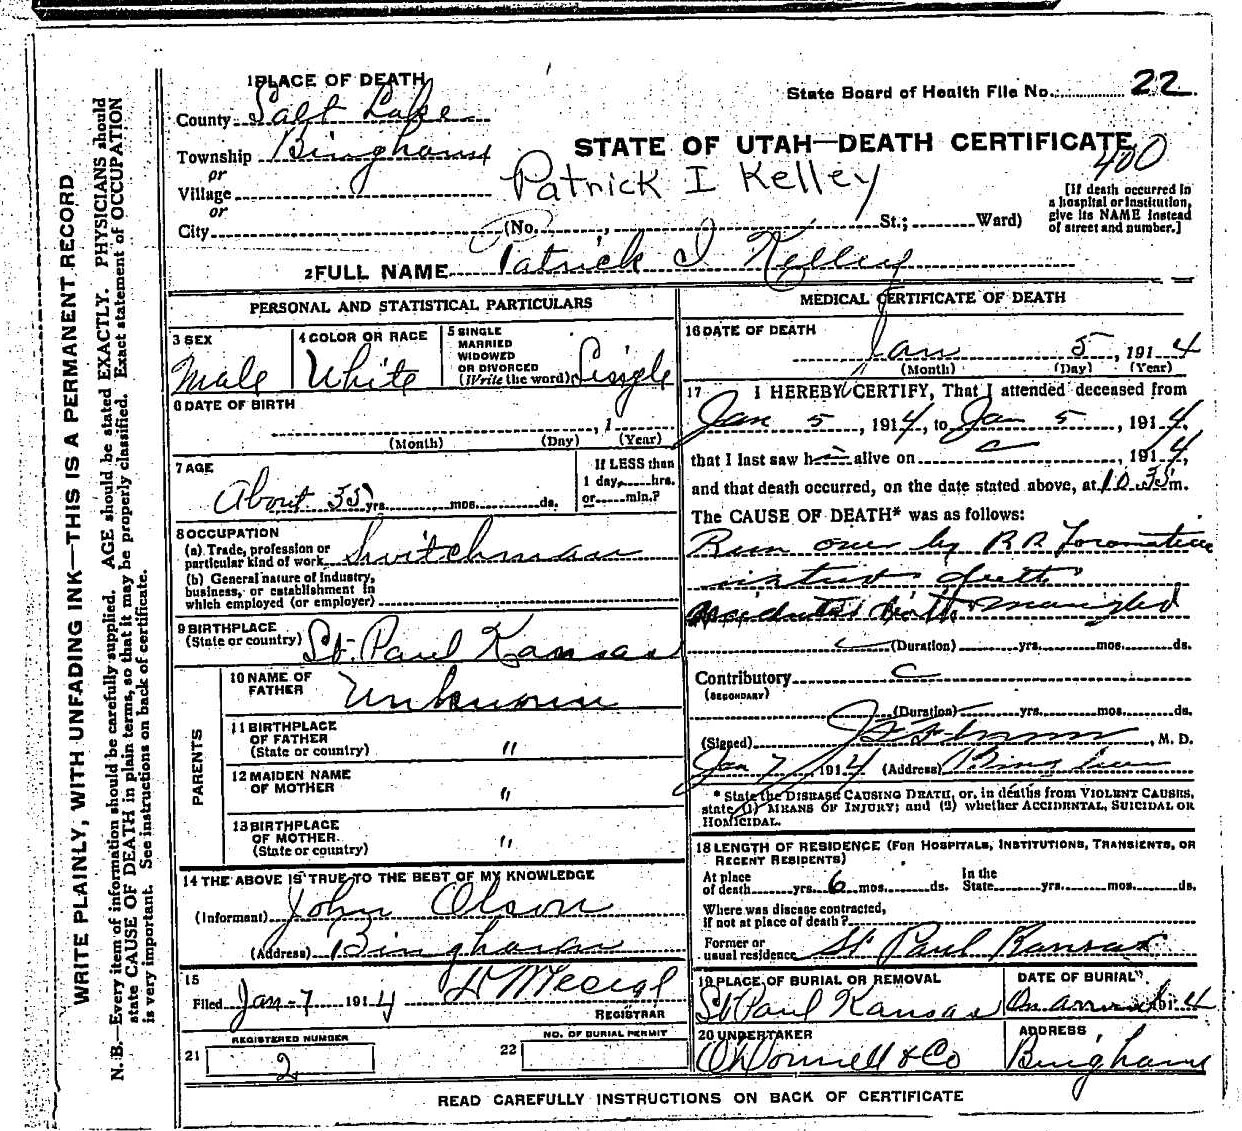 1 PLACE OF DEATH
State Board of Health File No. 22
County Salt Lake
STATE OF UTAH—DEATH CERTIFICATE
400
Township Bingham
or
Village
Patrick I Kelley
[If death occurred in a hospital or institution, give its NAME instead of street and number.]
or
City (No. , St.; Ward)
2 FULL NAME Patrick I Kelley
PERSONAL AND STATISTICAL PARTICULARS
3 SEX
Male
4 COLOR OR RACE
White
5 SINGLE
MARRIED
WIDOWED
OR DIVORCED
(Write the word) Single
6 DATE OF BIRTH
, 1
(Month) (Day) (Year)
7 AGE
About 35 yrs. mos. ds.
If LESS than
1 day, hrs.
or min.?
8 OCCUPATION
(a) Trade, profession or
particular kind of work Switchman
(b) General nature of Industry,
business, or establishment in
which employed (or employer)
9 BIRTHPLACE
(State or country) St. Paul Kansas
PARENTS
10 NAME OF
FATHER Unknown
11 BIRTHPLACE
OF FATHER
(State or country) "
12 MAIDEN NAME
OF MOTHER "
13 BIRTHPLACE
OF MOTHER
(State or country) "
14 THE ABOVE IS TRUE TO THE BEST OF MY KNOWLEDGE
(Informant) John Olson
(Address) Bingham
15
Filed Jan-7 1914
REGISTRAR
REGISTERED NUMBER
21 2
NO. OF BURIAL PERMIT
22
MEDICAL CERTIFICATE OF DEATH
16 DATE OF DEATH
Jan 5, 1914
(Month) (Day) (Year)
17 I HEREBY CERTIFY, That I attended deceased from
Jan 5, 1914, to Jan 5, 1914,
that I last saw h alive on , 1914,
and that death occurred, on the date stated above, at 10.35 m.
The CAUSE OF DEATH* was as follows:
Run over by R R Locomotive
death
mangled
(Duration) yrs. mos. ds.
Contributory
(SECONDARY)
(Duration) yrs. mos. ds.
(Signed) , M. D.
Jan 7, 1914 (Address) Bingham
* State the DISEASE CAUSING DEATH, or, in deaths from VIOLENT CAUSES,
state (1) MEANS OF INJURY; and (2) whether ACCIDENTAL, SUICIDAL OR
HOMICIDAL.
18 LENGTH OF RESIDENCE (FOR HOSPITALS, INSTITUTIONS, TRANSIENTS, OR
RECENT RESIDENTS)
At place
of death yrs. 6 mos. ds.
In the
State yrs. mos. ds.
Where was disease contracted,
if not at place of death?
Former or
usual residence St Paul Kansas
19 PLACE OF BURIAL OR REMOVAL
St Paul Kansas
DATE OF BURIAL
On 4
20 UNDERTAKER
O'Donnell & Co
ADDRESS
Bingham
READ CAREFULLY INSTRUCTIONS ON BACK OF CERTIFICATE
WRITE PLAINLY, WITH UNFADING INK—THIS IS A PERMANENT RECORD
N. B.—Every item of information should be carefully supplied. AGE should be stated EXACTLY. PHYSICIANS should
state CAUSE OF DEATH in plain terms, so that it may be properly classified. Exact statement of OCCUPATION
is very important. See instructions on back of certificate.